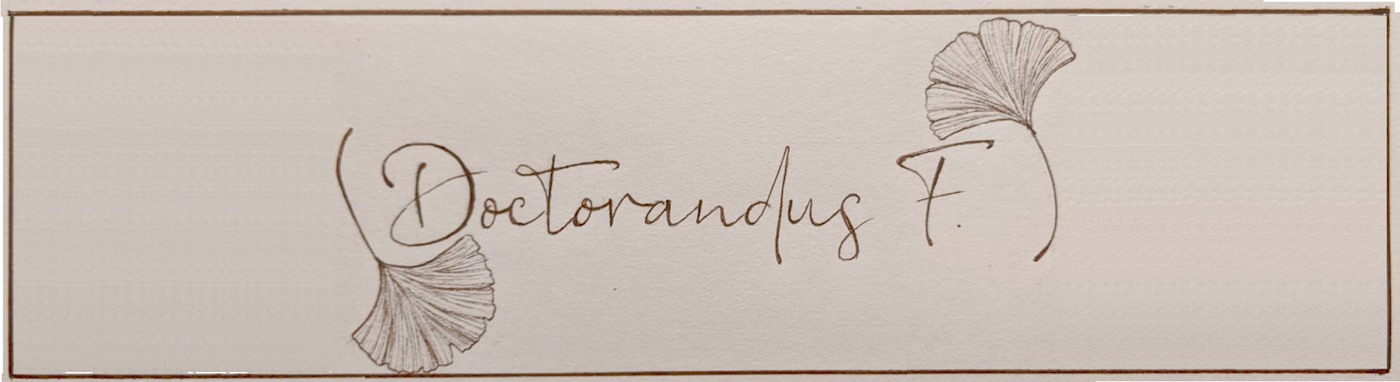 Doctorandus F.